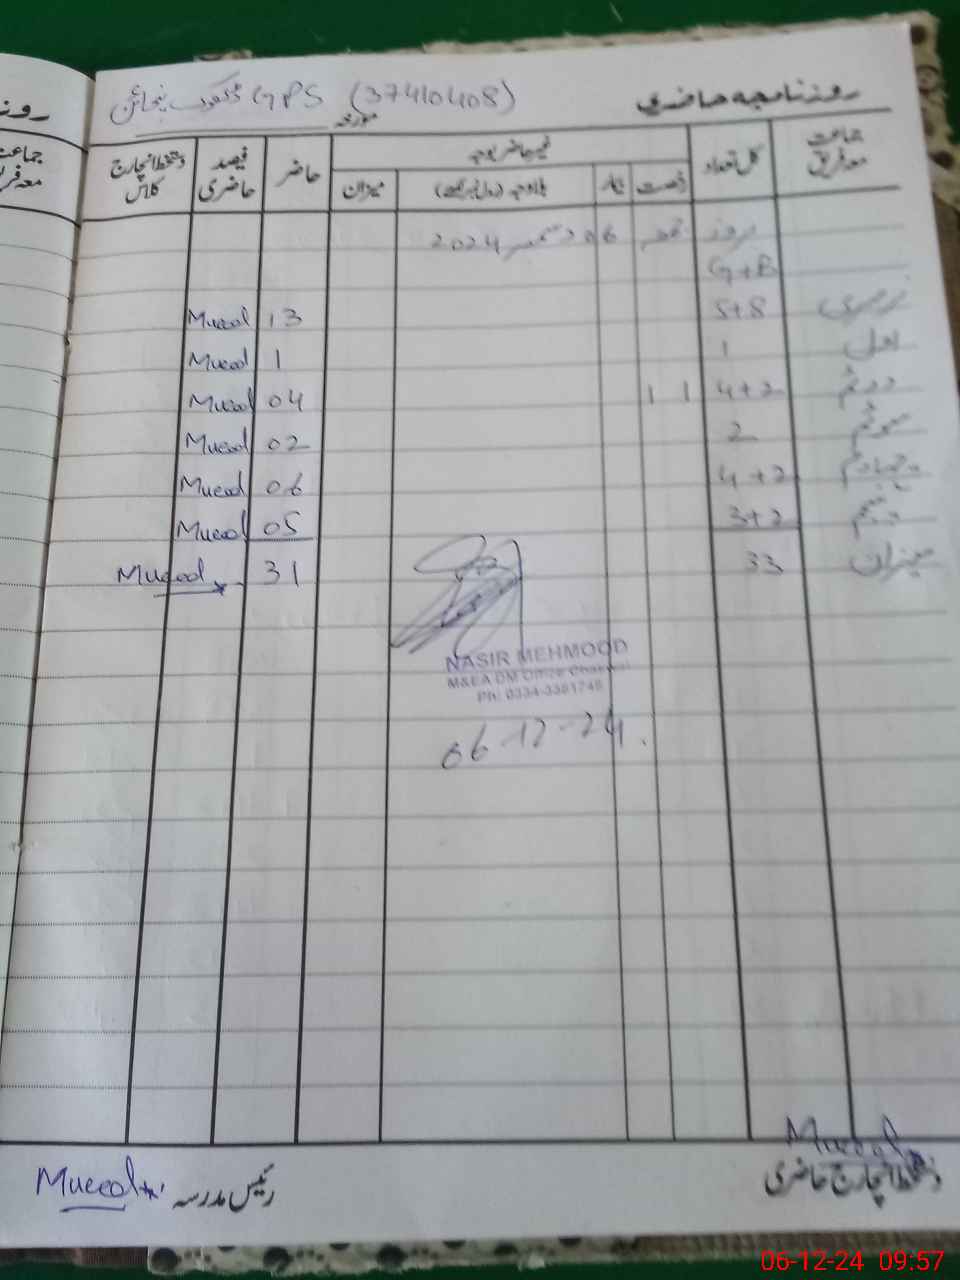 روزنامچہ حاضری
GPS (37410408)
مورخہ
جماعت معہ فریق کل تعداد غیر حاضر بوجہ حاضر فیصد حاضری دستخط انچارج کلاس
رخصت بیمار بلاوجہ میزان
بروز جمعہ 06 دسمبر 2024
G+B
نرسری 5+8 13 Mueed
اول 1 1 Mueed
دوئم 4+2 1 1 04 Mueed
سوئم 2 02 Mueed
چہارم 4+2 06 Mueed
پنجم 3+2 05 Mueed
میزان 33 31 Mueed
NASIR MEHMOOD
M&EA DM Office Chakwal
Ph: 0334-3381748
06-12-24.
Mueed
دستخط انچارج حاضری
رئیس مدرسہ Mueed
روزنا
جماعت
معہ فریق
06-12-24 09:57